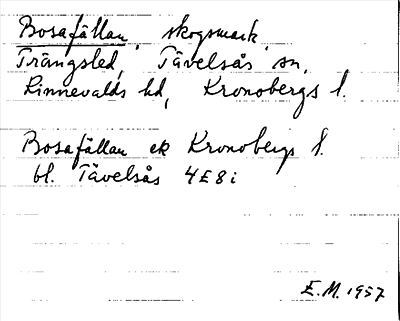 Bosafällan, skogsmark,
Trängsled, Tävelsås sn,
Kinnevalds hd, Kronobergs l.
Bosafällan ek Kronobergs l.
bl. Tävelsås 4E8i
E.M. 1957